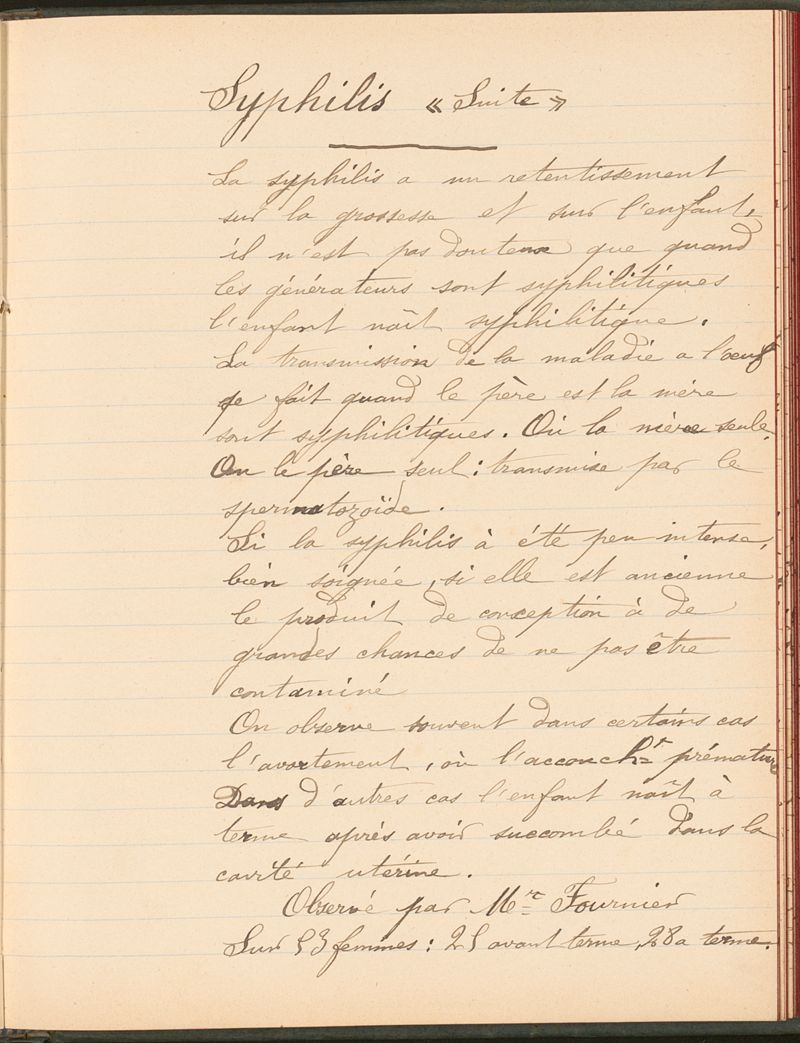 Syphilis « Suite »
La syphilis a un retentissement
sur la grossesse et sur l'enfant,
il n'est pas douteux que quand
les générateurs sont syphilitiques
l'enfant naît syphilitique.
La transmission de la maladie a l'œuf
se fait quand le père est la mère
sont syphilitiques. Où la mère seule,
Ou le père seul : transmise par le
spermatozoïde.
Si la syphilis à été peu intense,
bien soignée, si elle est ancienne
le produit de conception à de
grandes chances de ne pas être
contaminé
On observe souvent dans certains cas
l'avortement, où l'accoucht prématuré
Dans d'autres cas l'enfant naît à
terme après avoir succombé dans la
cavité utérine.
Observé par Mr Fournier
Sur 53 femmes : 25 avant terme, 28 a terme.